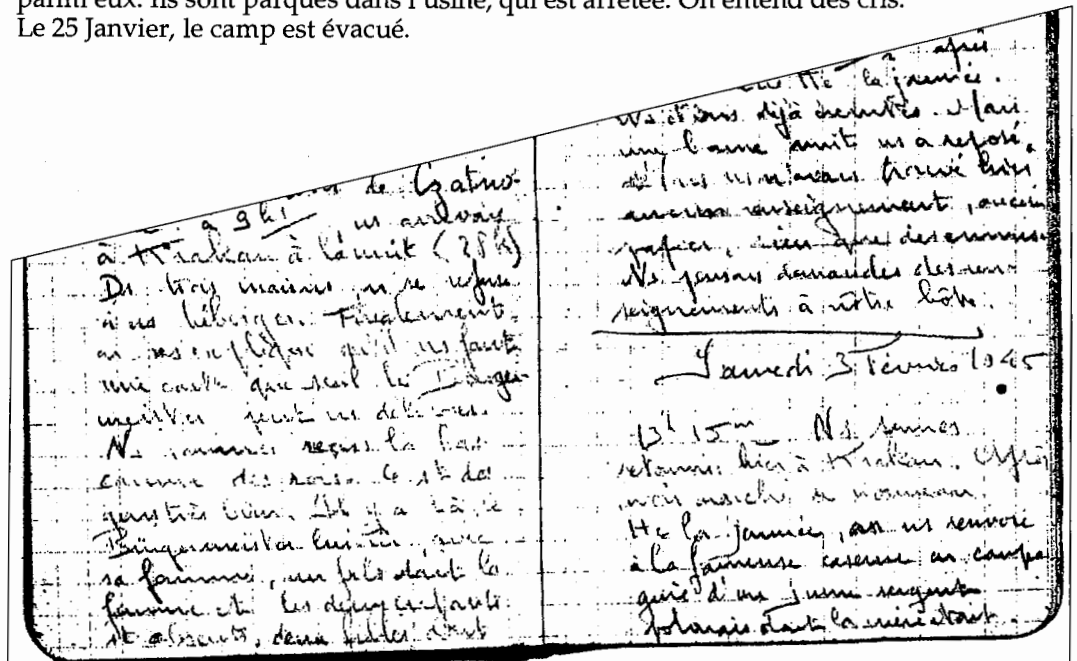 parmi eux. Ils sont parqués dans l'usine, qui est arrêtée. On entend des cris.
Le 25 Janvier, le camp est évacué.
de
à 9h ns arrivons
à Krakau à la nuit (28 K)
De trois maisons on se refuse
à ns héberger. Finalement
on ns explique qu'il ns faut
une carte que seul le Bürger-
meister peut ns délivrer.
Ns sommes reçus là bas
comme des rois. Ce st des
gens très bien. Il y a là le
Bürgermeister lui-même, avec
sa femme, un fils dont la
femme et les deux enfants
st absents, deux filles dont
après
tte la journée.
Ns étions déjà éreintés. Mais
une bonne nuit ns a reposé,
et puis ns n'avons trouvé hier
aucun renseignement, aucun
papier, rien que des
Ns pensons demander des ren-
seignements à notre hôte.
Samedi 3 Février 1945
13h 15m Ns sommes
retournés hier à Krakau. Après
avoir marché à nouveau
tte la journée, on ns renvoie
à la fameuse caserne en compa
gnie d'un jeune sergent
polonais dont la mère était